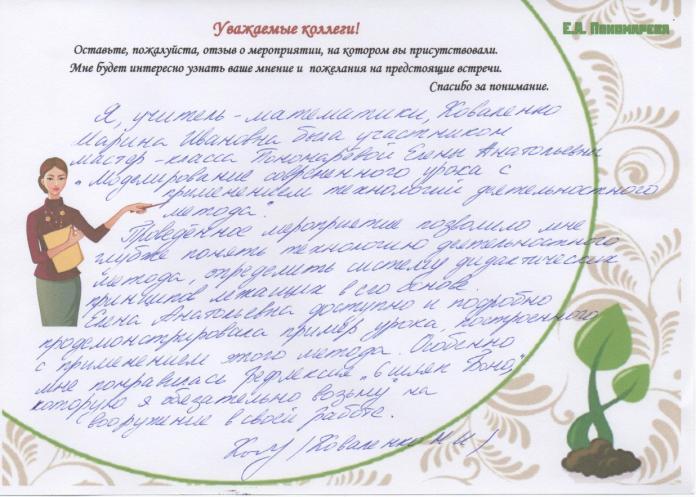 Уважаемые коллеги!
Е.А. Пономарева
Оставьте, пожалуйста, отзыв о мероприятии, на котором вы присутствовали.
Мне будет интересно узнать ваше мнение и пожелания на предстоящие встречи.
Спасибо за понимание.
Я, учитель-математики, Коваленко
Марина Ивановна была участником
мастер-класса Пономаровой Елены Анатольевны
"Моделирование современного урока с
применением технологии деятельностного
метода".
Проведённое мероприятие позволило мне
глубже понять технологию деятельностного
метода, определить систему дидактических
принципов лежащих в его основе.
Елена Анатольевна доступно и подробно
продемонстрировала пример урока, построенного
с применением этого метода. Особенно
мне понравилась рефлексия "6 шляп Боно",
которую я обязательно возьму на
вооружение в своей работе.
(Коваленко М.И.)